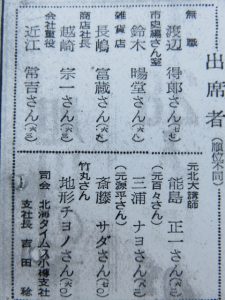 出席者（順不同）
無職
渡辺 得郎さん（七
市史編さん室
鈴木 暘堂さん（六
雑貨店
長嶋 富蔵さん（六
商店社長
越崎 宗一さん（六
会社重役
近江 常吉さん（六
元北大講師
能島 正一さん（六
（元百々さん）
三浦 ナヨさん（六
（元源平さん）
斎藤 サダさん（七
竹丸さん
地形チヨノさん（六
司会 北海タイムス小樽支社
支社長 吉田 稔